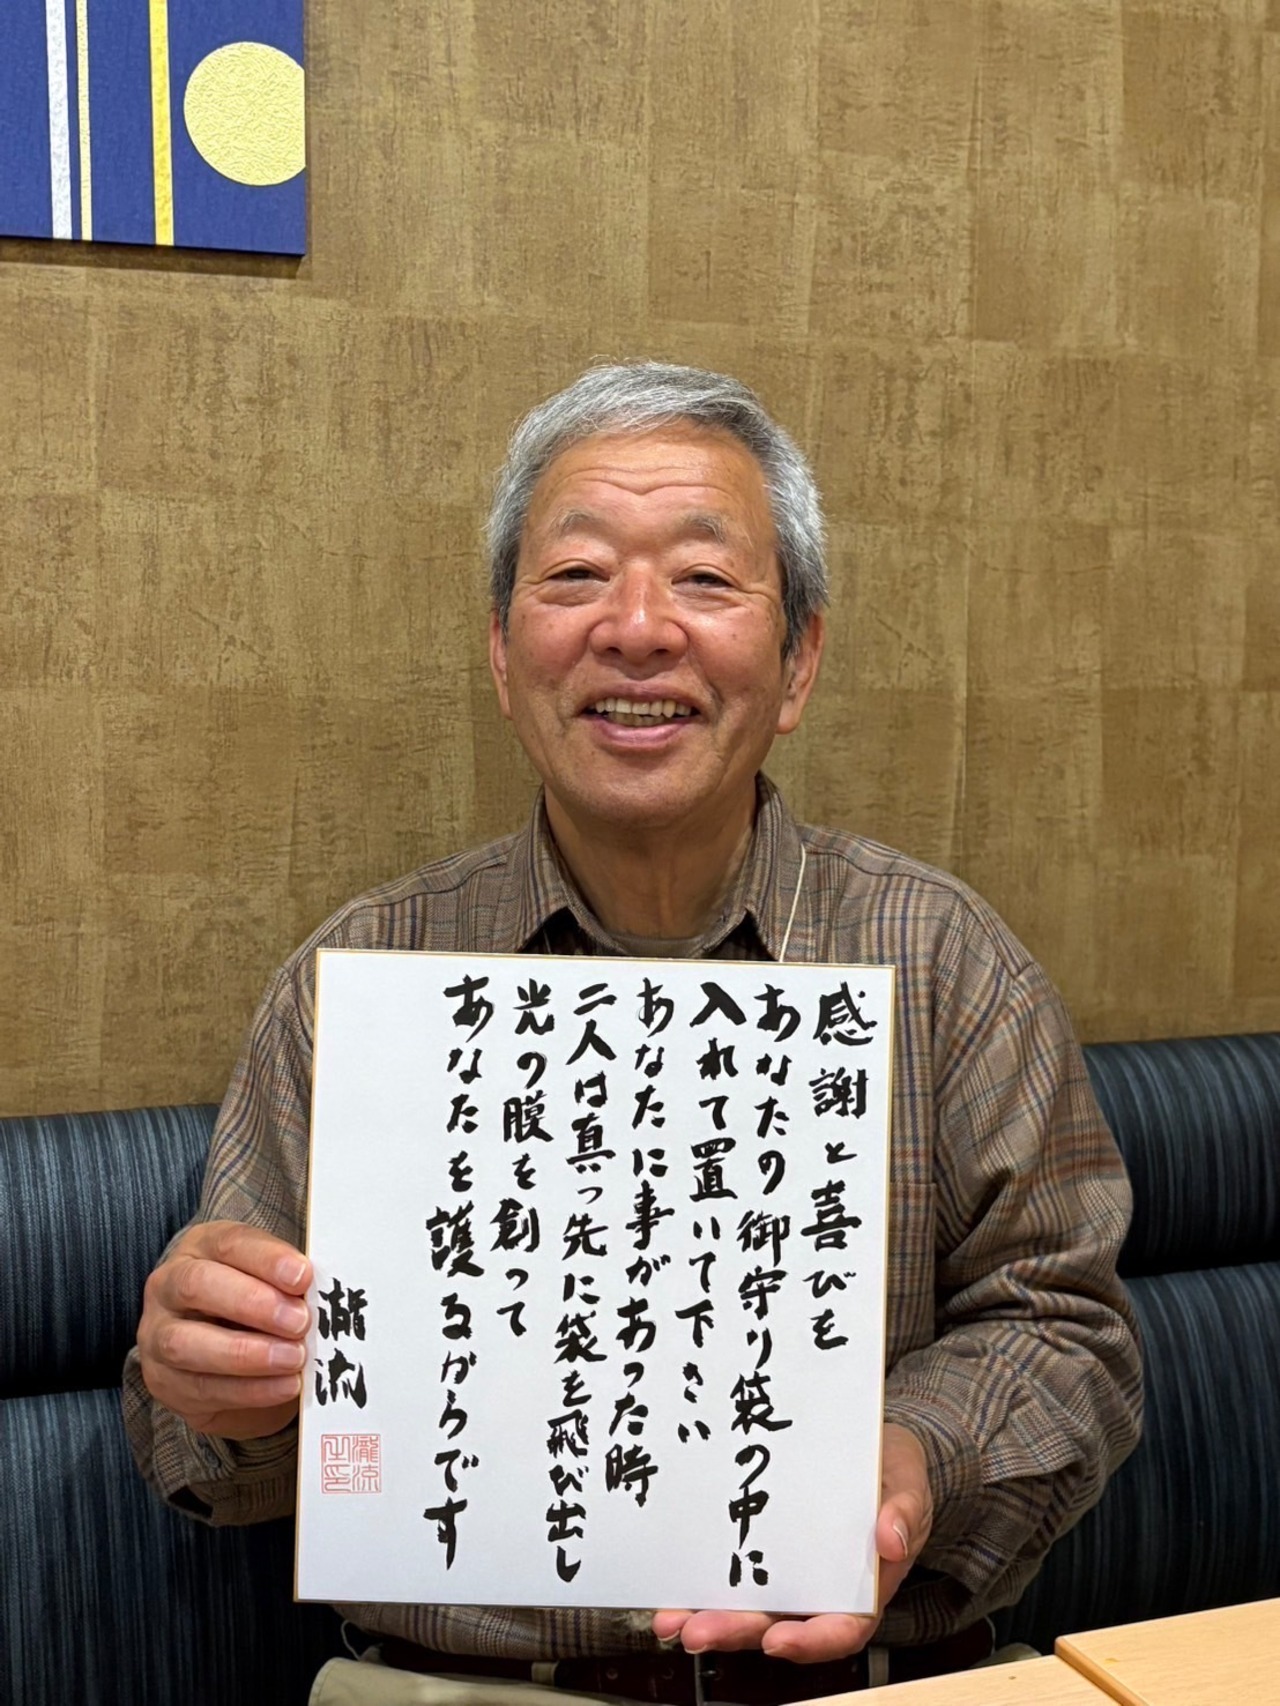 感謝と喜びを
あなたの御守り袋の中に
入れて置いて下さい
あなたに事があった時
二人は真っ先に袋を飛び出し
光の膜を創って
あなたを護るからです
瀧流